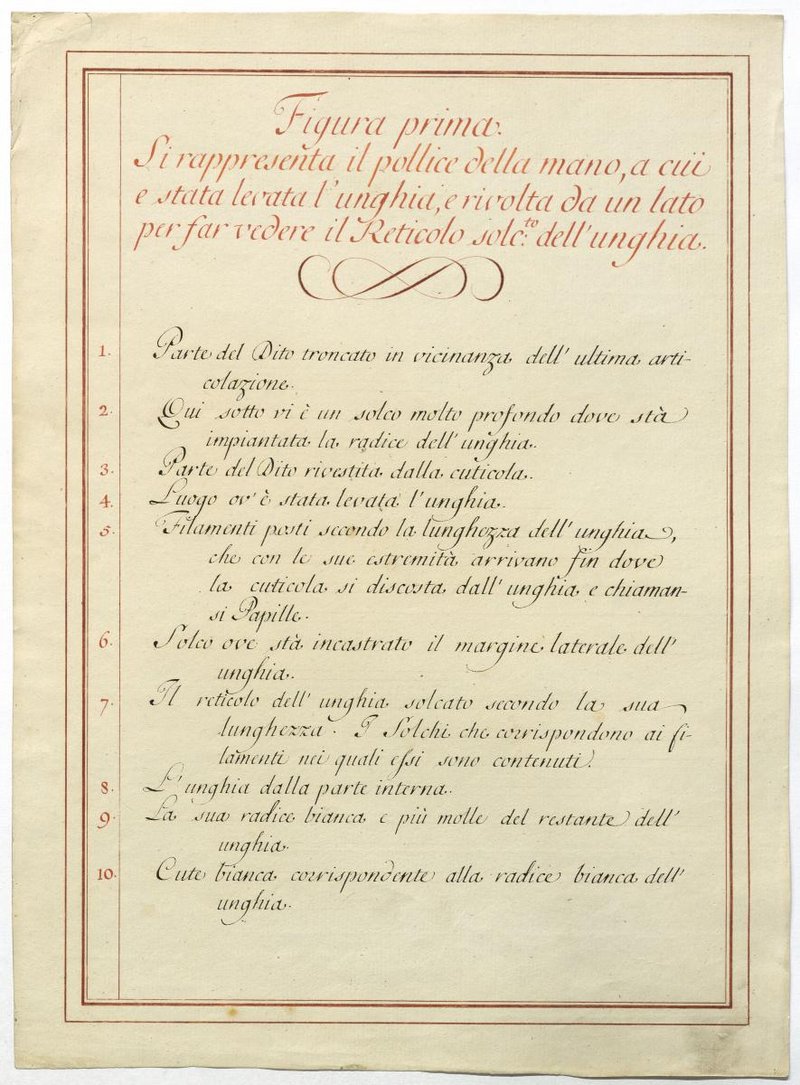 Figura prima.
Si rappresenta il pollice della mano, a cui
e stata levata l'unghia, e rivolta da un lato
per far vedere il Reticolo solc.to dell'unghia.
1. Parte del Dito troncato in vicinanza dell'ultima arti-
colazione.
2. Qui sotto vi è un solco molto profondo dove stà
impiantata la radice dell'unghia.
3. Parte del Dito rivestita dalla cuticola.
4. Luogo ov'è stata levata l'unghia.
5. Filamenti posti secondo la lunghezza dell'unghia,
che con le sue estremità arrivano fin dove
la cuticola si discosta dall'unghia e chiaman-
si Papille.
6. Solco ove stà incastrato il margine laterale dell'
unghia.
7. Il reticolo dell'unghia solcato secondo la sua
lunghezza. I Solchi che corrispondono ai fi-
lamenti nei quali essi sono contenuti.
8. L'unghia dalla parte interna.
9. La sua radice bianca e più molle del restante dell'
unghia.
10. Cute bianca corrispondente alla radice bianca dell'
unghia.